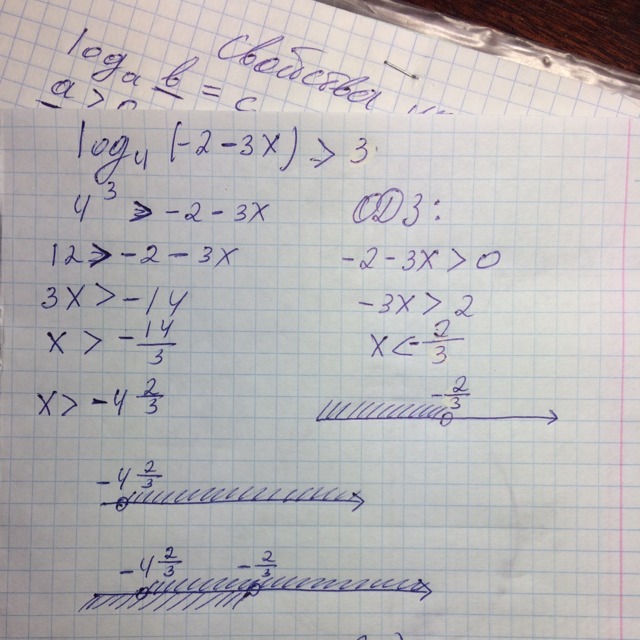 свойства
logₐ b = c
a > 0
log₄ (-2 - 3x) > 3
4³ > -2 - 3x
12 > -2 - 3x
3x > -14
x > -14/3
x > -4 2/3
ОДЗ:
-2 - 3x > 0
-3x > 2
x < -2/3
-2/3
-4 2/3
-4 2/3 -2/3